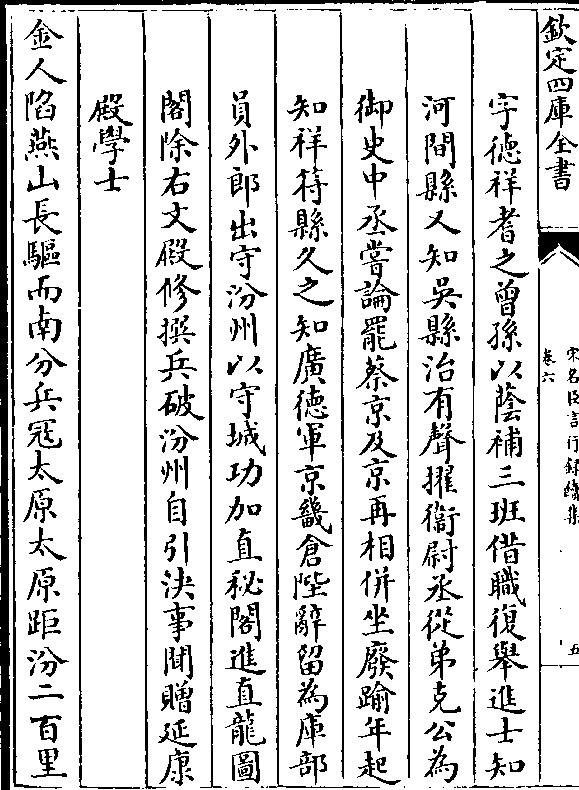 欽定四庫全書
宋名臣言行録續集
卷六
五
字德祥耆之曾孫以蔭補三班借職復舉進士知
河間縣又知吳縣治有聲擢衞尉丞從弟克公為
御史中丞嘗論罷蔡京及京再相併坐廢踰年起
知祥符縣久之知廣德軍京畿倉陛辭留為庫部
員外郎出守汾州以守城功加直秘閣進直龍圖
閣除右文殿修撰兵破汾州自引決事聞贈延康
殿學士
金人陷燕山長驅而南分兵冦太原太原距汾二百里